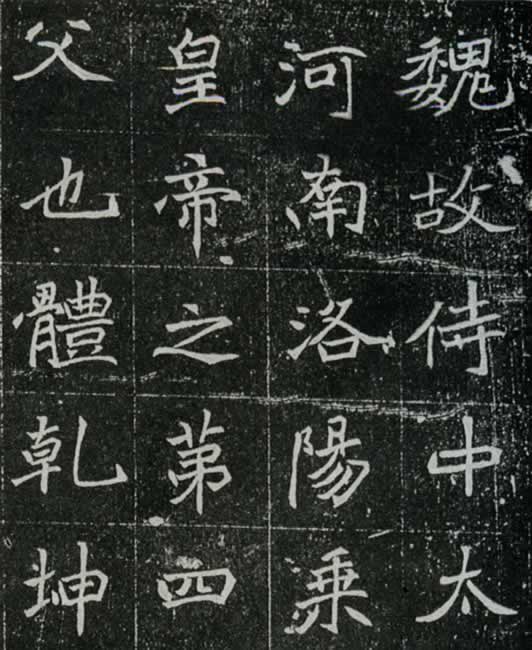 魏故侍中太
河南洛陽乗
皇帝之苐四
父也體乾坤